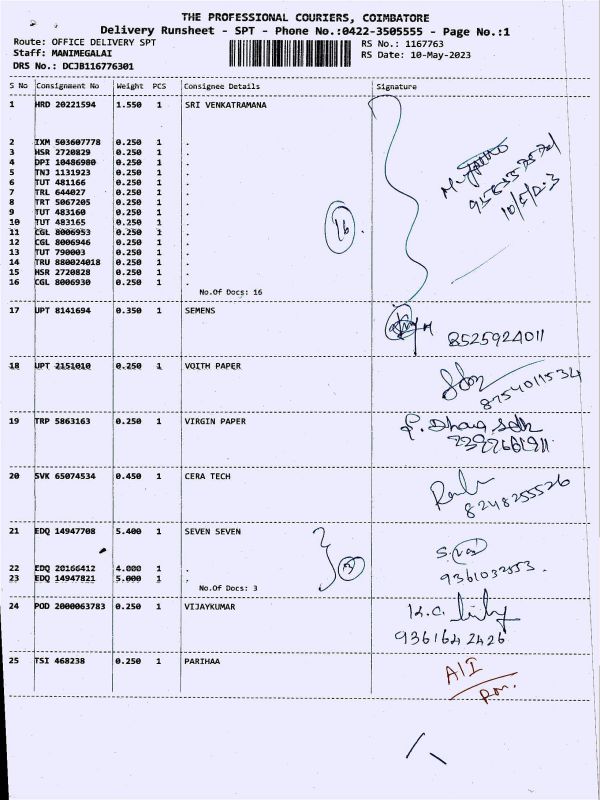 THE PROFESSIONAL COURIERS, COIMBATORE
Delivery Runsheet - SPT - Phone No.:0422-3505555 - Page No.:1
Route: OFFICE DELIVERY SPT RS No.: 1167763
Staff: MANIMEGALAI RS Date: 10-May-2023
DRS No.: DCJB116776301
S No Consignment No Weight PCS Consignee Details Signature
1 HRD 20221594 1.550 1 SRI VENKATRAMANA
2 IXM 503607778 0.250 1 .
3 HSR 2720829 0.250 1 .
4 DPI 10486980 0.250 1 .
5 TNJ 1131923 0.250 1 .
6 TUT 481166 0.250 1 .
7 TRL 644027 0.250 1 .
8 TRT 5067205 0.250 1 .
9 TUT 483160 0.250 1 .
10 TUT 483165 0.250 1 .
11 CGL 8006953 0.250 1 . 16
12 CGL 8006946 0.250 1 .
13 TUT 790003 0.250 1 .
14 TRU 880024018 0.250 1 .
15 HSR 2720828 0.250 1 .
16 CGL 8006930 0.250 1 .
No.Of Docs: 16
17 UPT 8141694 0.350 1 SEMENS
8525924011
18 UPT 2151010 0.250 1 VOITH PAPER
8754011534
19 TRP 5863163 0.250 1 VIRGIN PAPER
20 SVK 65074534 0.450 1 CERA TECH
8248255526
21 EDQ 14947708 5.400 1 SEVEN SEVEN
22 EDQ 20166412 4.000 1 .
23 EDQ 14947821 5.000 1 .
No.Of Docs: 3
24 POD 2000063783 0.250 1 VIJAYKUMAR K.C.
9361642426
25 TSI 468238 0.250 1 PARIHAA